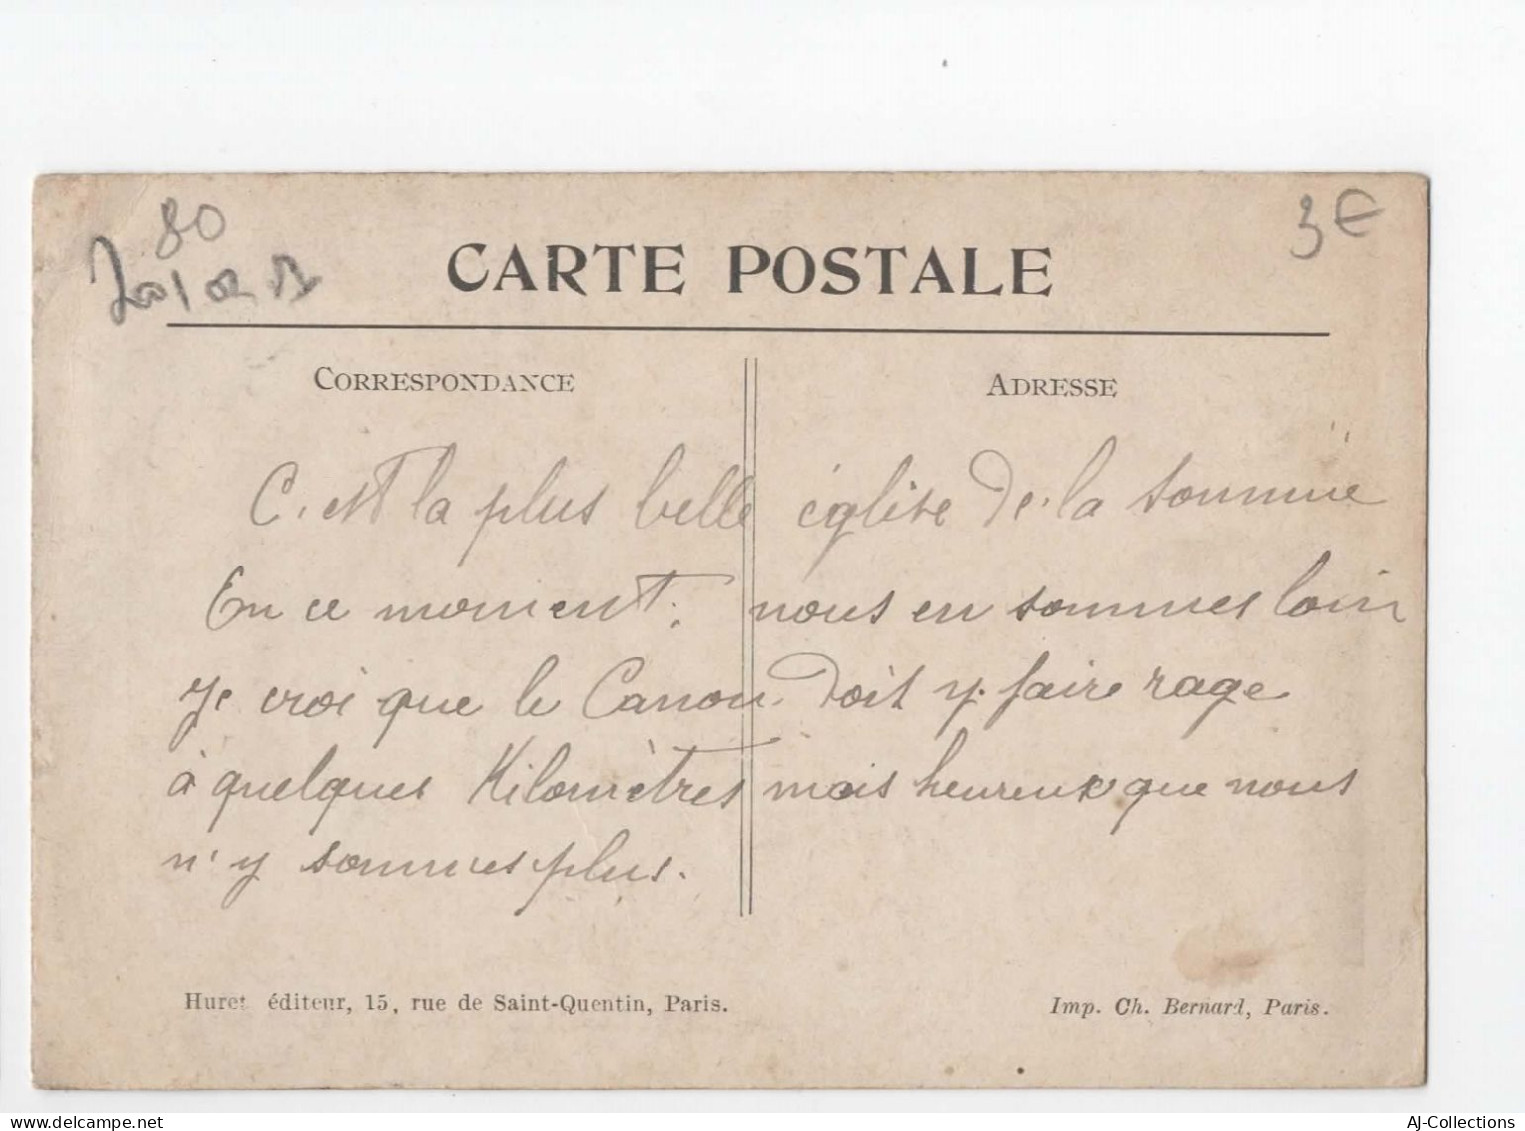 80
3€
CARTE POSTALE
CORRESPONDANCE
ADRESSE
C. est la plus belle église de la somme
En ce moment. nous en sommes loin
Je croi que le Canon. doit y. faire rage
à quelques Kilomètres mais heureux que nous
n'y sommes plus.
Huret éditeur, 15, rue de Saint-Quentin, Paris.
Imp. Ch. Bernard, Paris.
AJ-Collections